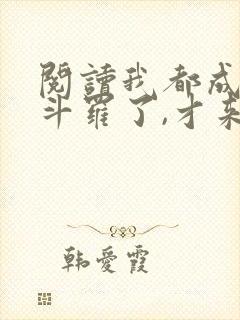 閱讀我都成
斗羅了,才來
韩愛霞